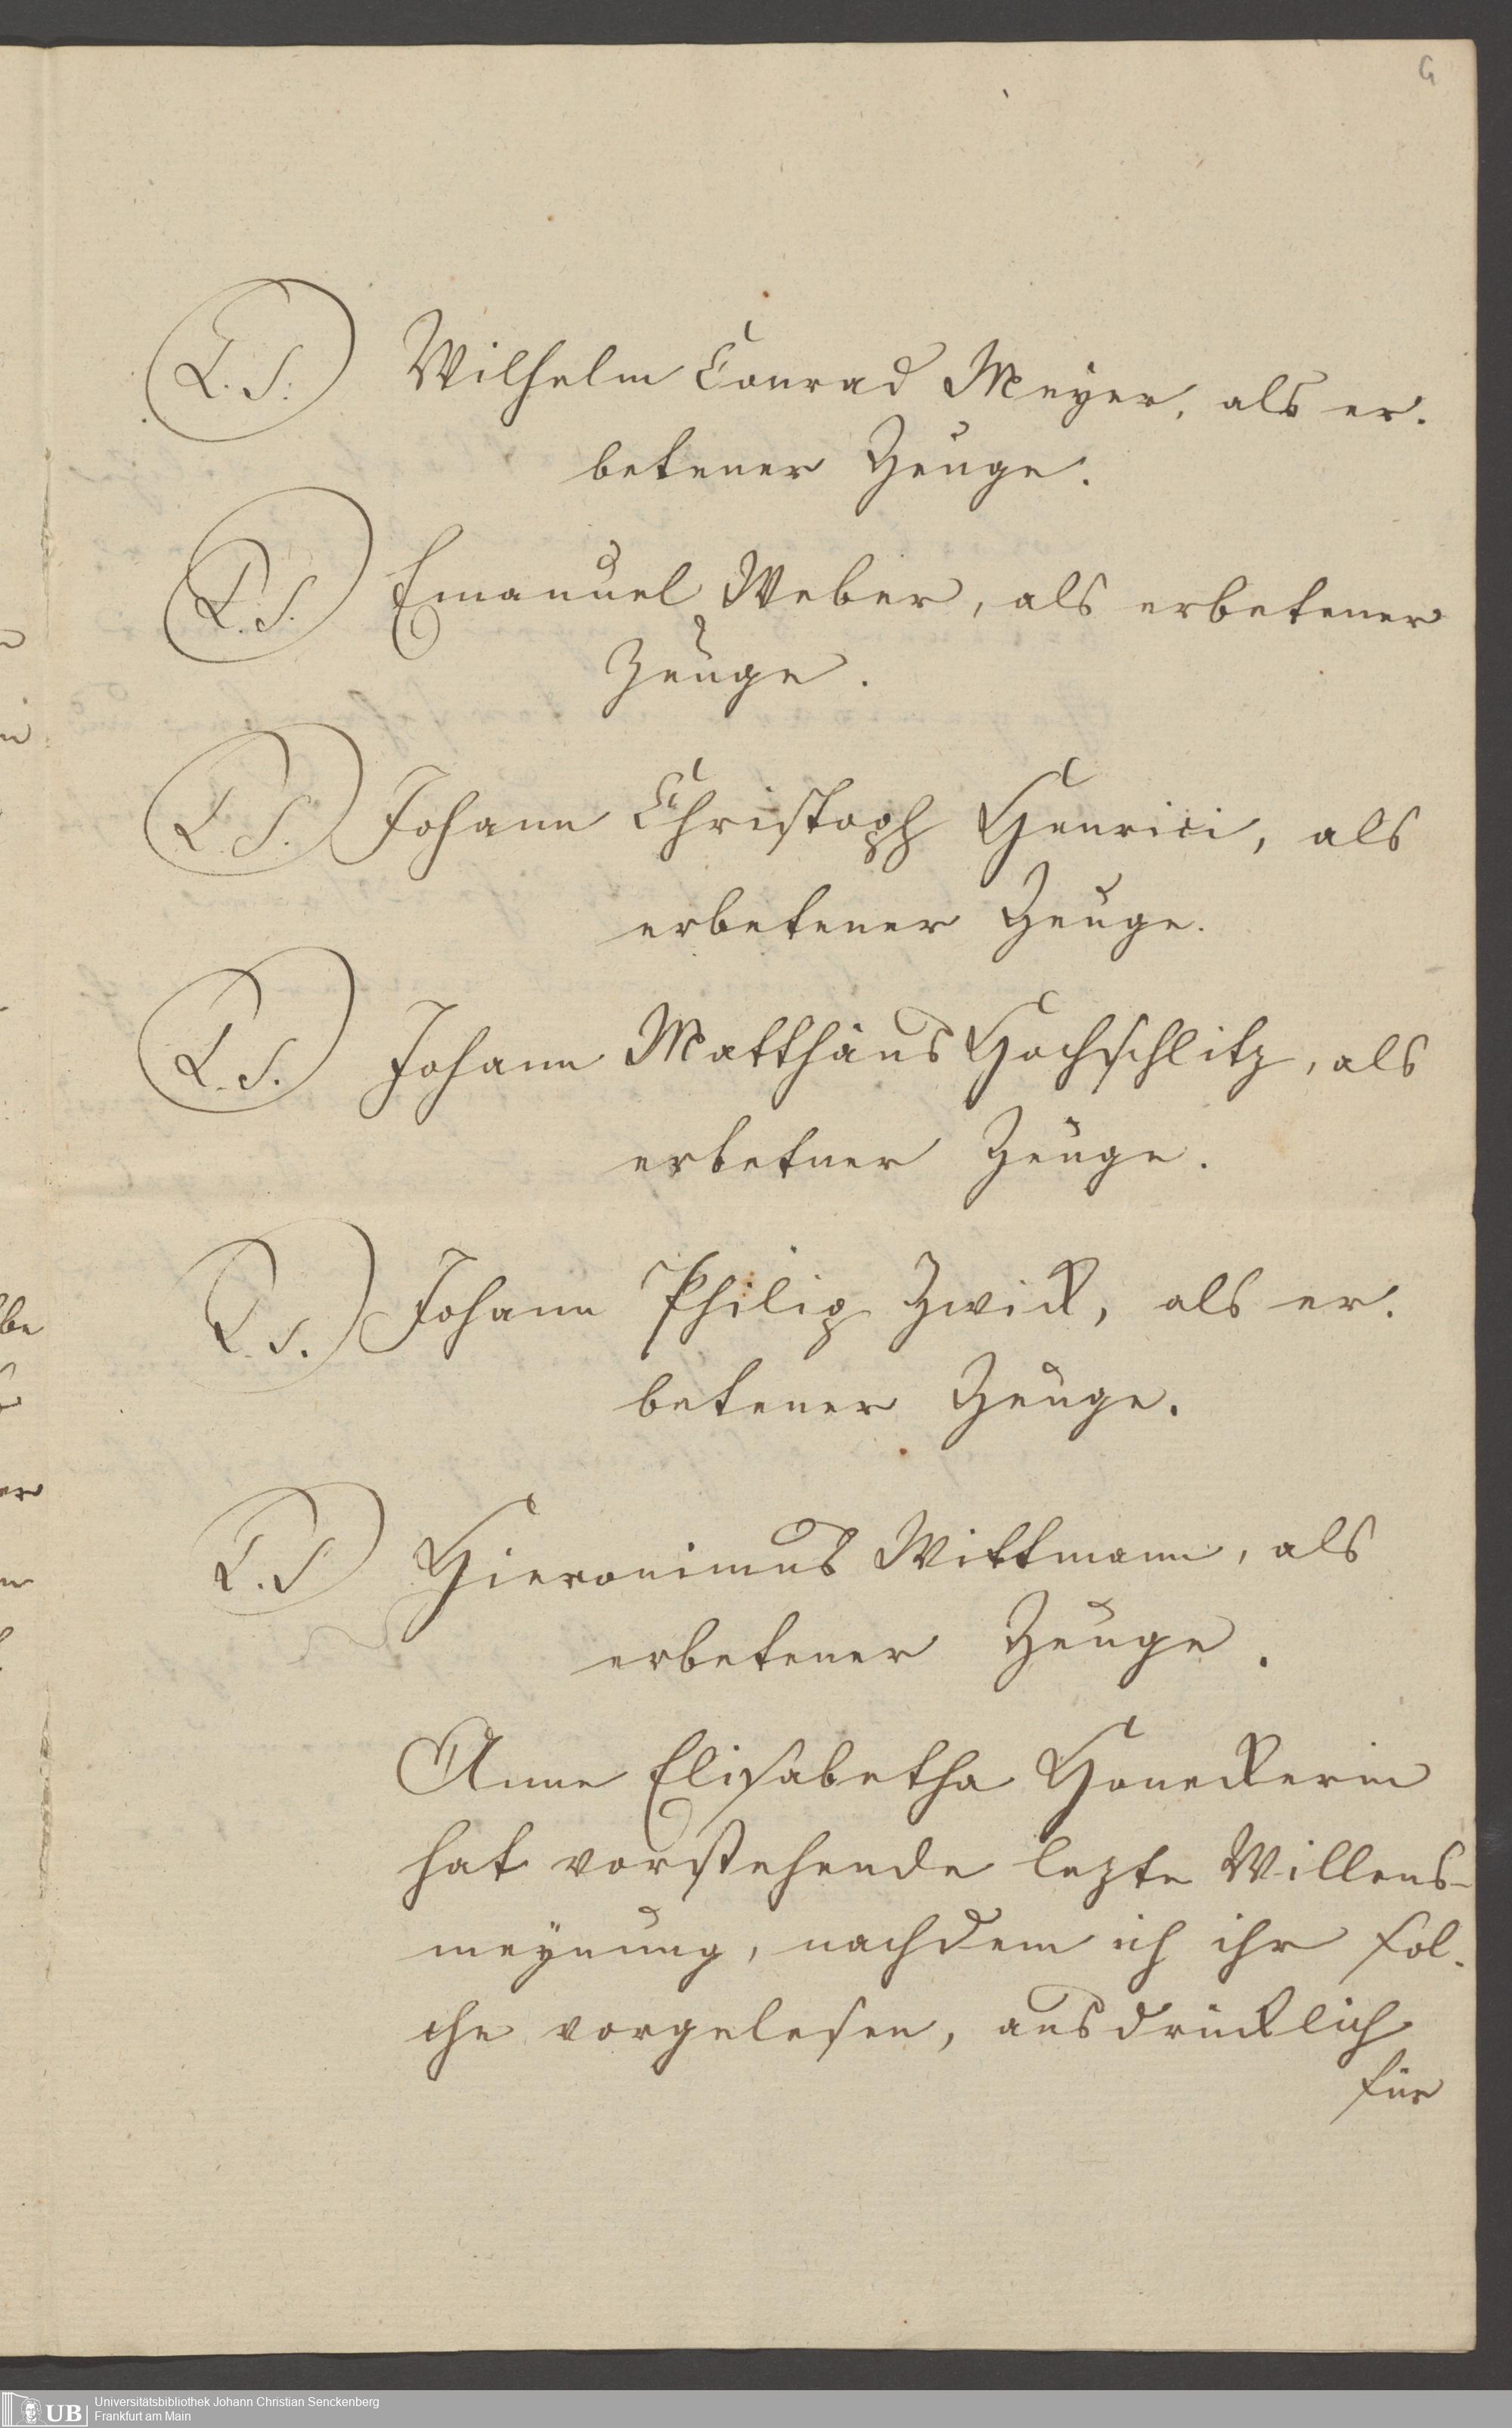 L. S. Wilhelm Conrad Meyer, als er-
betener Zeuge.
L. S. Emanuel Weber, als erbetener
Zeuge.
L. S. Johann Christoph Henrici, als
erbetener Zeuge.
L. S. Johann Matthäus Hochschlitz, als
erbetner Zeuge.
L. S. Johann Philip Zwick, als er-
betener Zeuge.
L. S. Hieronimus Wittmann, als
erbetener Zeuge.
Anne Elisabetha Honeckerin
hat vorstehende lezte Willens-
meÿnung, nachdem ich ihr sol-
che vorgelesen, ausdrücklich
für
Universitätsbibliothek Johann Christian Senckenberg
UB
Frankfurt am Main